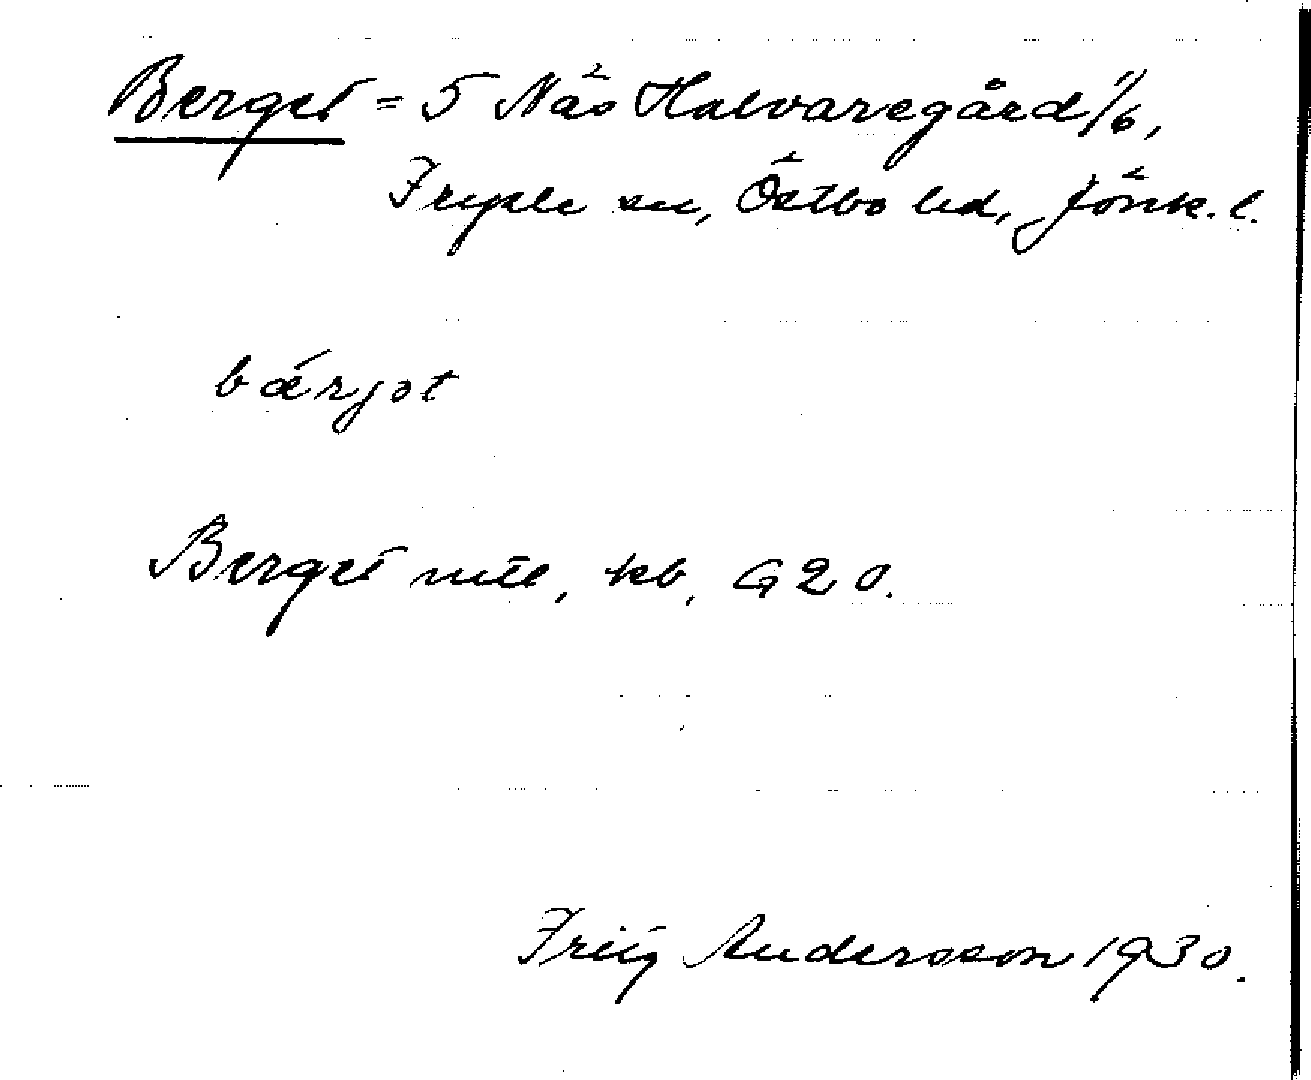 Berget = 5 Näs Halvaregård 1/6,
Fryele sn, Östbo hd, Jönk. l.
bǽrjət
Berget mtl, kb, G20.
Fritz Andersson 1930.